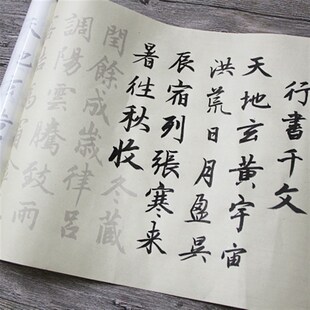 行書千文
天地玄黃宇宙
洪荒日月盈昃
辰宿列張寒来
暑往秋收冬藏
閏餘成歲律呂
調陽雲騰致雨